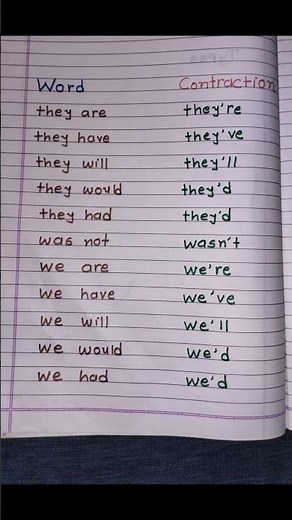 Word Contraction
they are they're
they have they've
they will they'll
they would they'd
they had they'd
was not wasn't
we are we're
we have we've
we will we'll
we would we'd
we had we'd